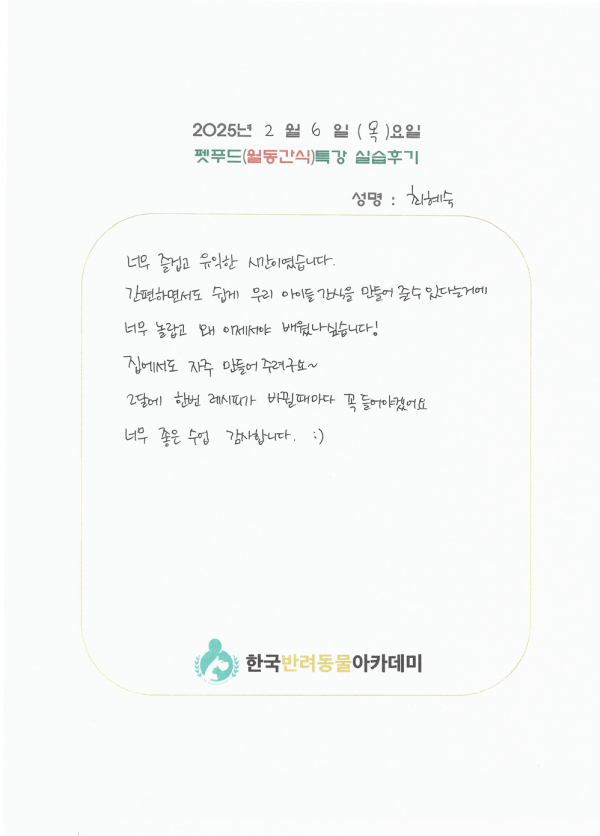 2025년 2 월 6 일 (목)요일
펫푸드(월동간식)특강 실습후기
성명 : 최혜숙
너무 즐겁고 유익한 시간이였습니다.
간편하면서도 쉽게 우리 아이들 간식을 만들어 줄수 있다는거에
너무 놀랍고 왜 이제서야 배웠나싶습니다!
집에서도 자주 만들어주려구요~
2달에 한번 레시피가 바뀔때마다 꼭 들어야겠어요
너무 좋은 수업 감사합니다. :)
한국반려동물아카데미